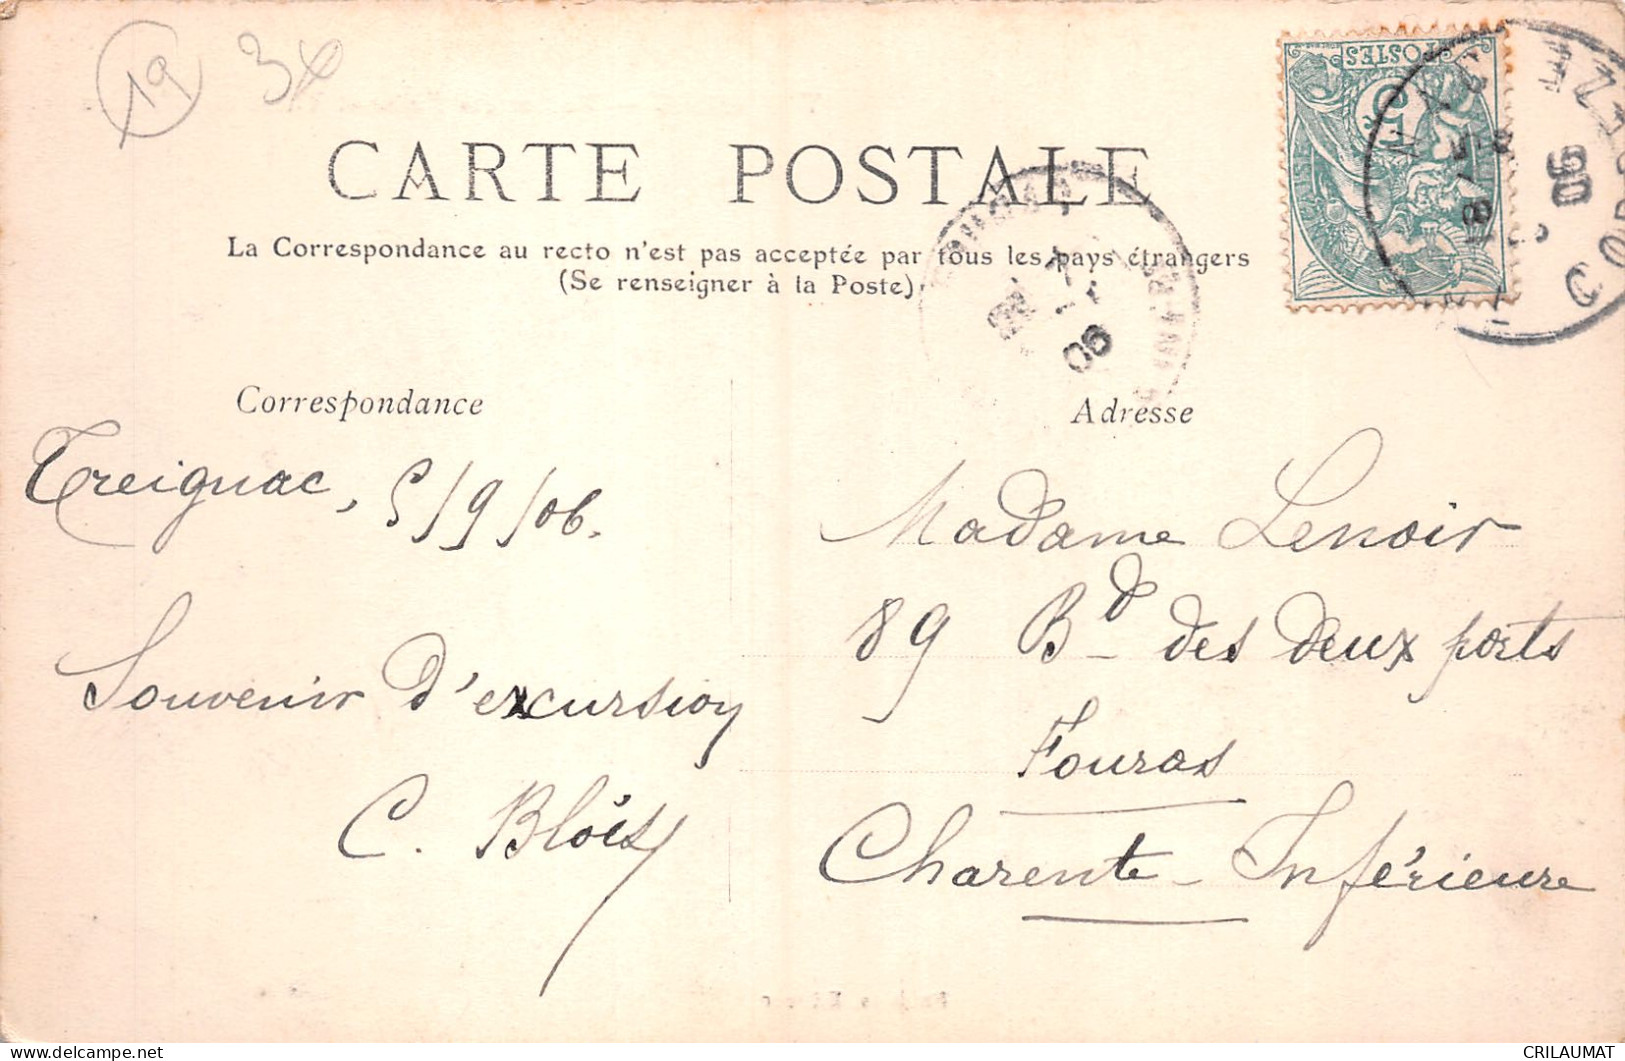 19
CARTE POSTALE
La Correspondance au recto n'est pas acceptée par tous les pays étrangers
(Se renseigner à la Poste)
POSTES
5
06
06
CORRÈZE
Correspondance
Treignac, 5/9/06.
Souvenir d'excursion
C. Blois
Adresse
Madame Lenoir
89 Bd des deux ports
Fouras
Charente-Inférieure
CRILAUMAT